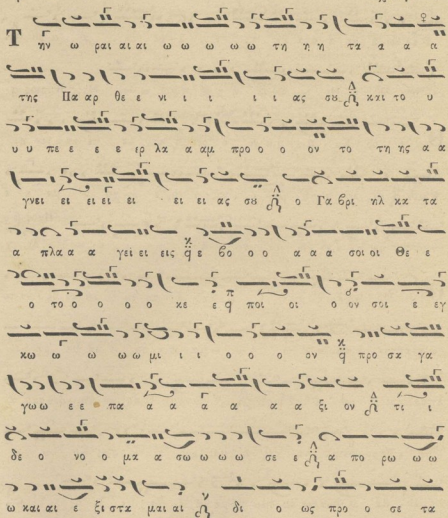 Τ ην ω ραι αι αι ω ω ω ω ω τη η η τα α α α
της Πα αρ θε ε νι ι ι ι ι ας σȣ Δ και το υ
υ υ πε ε ε ε ερ λα α αμ προ ο ο ον το τη ης α α
γνει ει ει ει ει ει ει ας σȣ Δ ο Γα βρι ηλ κα τα
α πλα α α γει ει εις κ q ε βο ο ο α α α σοι οι Θε ε
ο το ο ο ο ο κε ε π q ποι οι ο ον σοι ε εγ
κω ω ω ω ω μι ι ι ο ο ο ον κ q προ σα γα
γω ω ε ε πα α α α α α α ξι ον Δ τι ι
δε ο νο ο μα α σω ω ω ω σε ε Δ α πο ρω ω ω
ω και αι ε ξι στα μαι αι ν δι ο ως προ ο σε τα